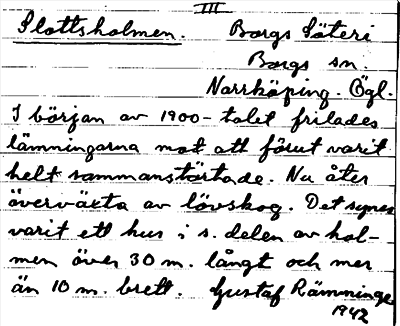 III
Slottsholmen. Borgs Säteri
Borgs sn.
Norrköping. Ögl.
I början av 1900-talet frilades
lämningarna mot att förut varit
helt sammanstörtade. Nu åter
överväxta av lövskog. Det synes
varit ett hus i s. delen av hol-
men över 30 m. långt och mer
än 10 m. brett. Gustaf Rämninge
1942